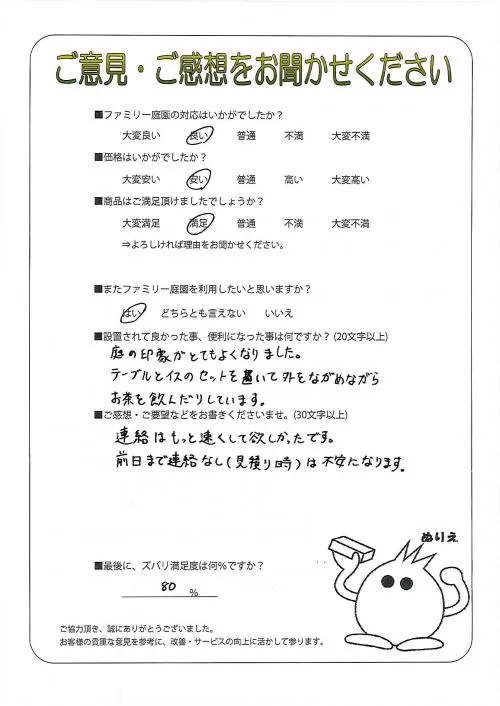 ご意見・ご感想をお聞かせください
■ファミリー庭園の対応はいかがでしたか？
大変良い 良い 普通 不満 大変不満
■価格はいかがでしたか？
大変安い 安い 普通 高い 大変高い
■商品はご満足頂けましたでしょうか？
大変満足 満足 普通 不満 大変不満
⇒よろしければ理由をお聞かせください。
■またファミリー庭園を利用したいと思いますか？
はい どちらとも言えない いいえ
■設置されて良かった事、便利になった事は何ですか？(20文字以上)
庭の印象がとてもよくなりました。
テーブルとイスのセットを置いて外をながめながら
お茶を飲んだりしています。
■ご感想・ご要望などをお書きくださいませ。(30文字以上)
連絡はもっと速くして欲しかったです。
前日まで連絡なし(見積り時)は不安になります。
ぬりえ
■最後に、ズバリ満足度は何%ですか？
80 %
ご協力頂き、誠にありがとうございました。
お客様の貴重な意見を参考に、改善・サービスの向上に活かして参ります。